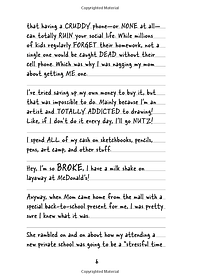 that having a CRUDDY phone—or NONE at all—
can totally RUIN your social life. While millions
of kids regularly FORGET their homework, not a
single one would be caught DEAD without their
cell phone. Which was why I was nagging my mom
about getting ME one.
I've tried saving up my own money to buy it, but
that was impossible to do. Mainly because I'm an
artist and TOTALLY ADDICTED to drawing!
Like, if I don't do it every day, I'll go NUTZ!
I spend ALL of my cash on sketchbooks, pencils,
pens, art camp, and other stuff.
Hey, I'm so BROKE, I have a milk shake on
layaway at McDonald's!
Anyway, when Mom came home from the mall with
a special back-to-school present for me, I was pretty
sure I knew what it was.
She rambled on and on about how my attending a
new private school was going to be a "stressful time
6